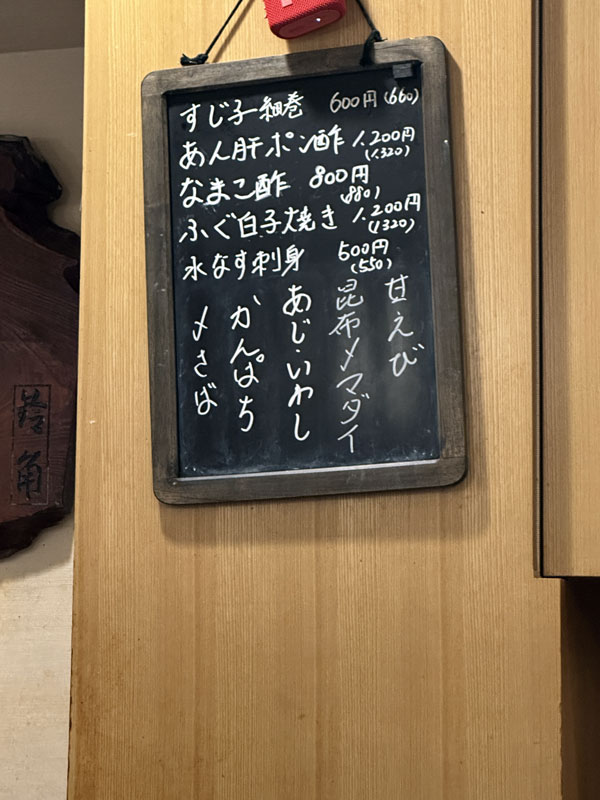 すじ子細巻 600円(660)
あん肝ポン酢 1.200円
(1.320)
なまこ酢 800円
(880)
ふぐ白子焼き 1.200円
(1320)
水なす刺身 500円
(550)
甘えび
昆布〆マダイ
あじ・いわし
かんぱち
〆さば